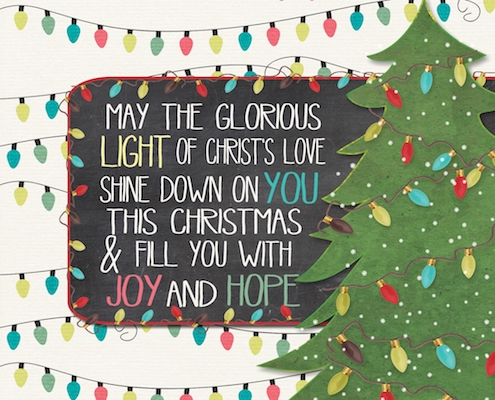 MAY THE GLORIOUS
LIGHT OF CHRIST'S LOVE
SHINE DOWN ON YOU
THIS CHRISTMAS
& FILL YOU WITH
JOY AND HOPE